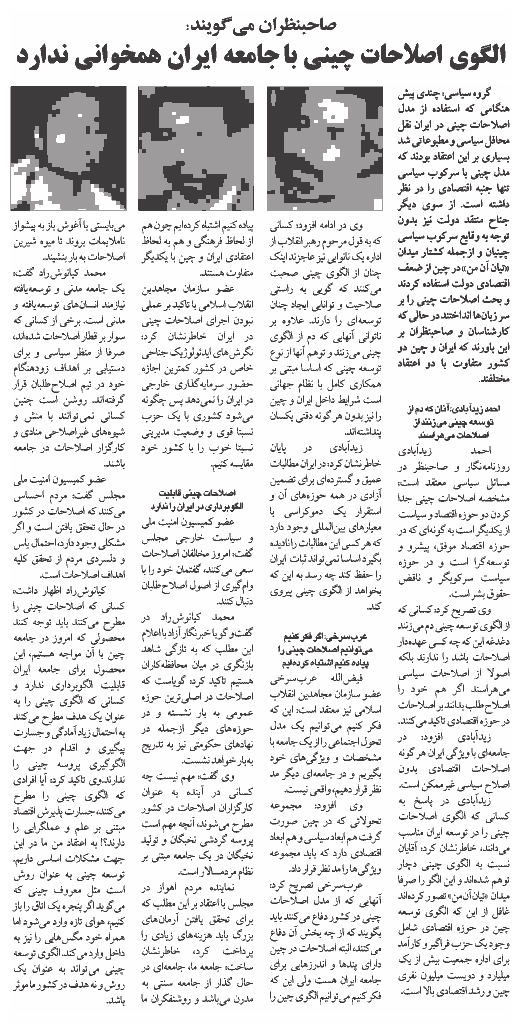 صاحبنظران می‌گویند:
الگوی اصلاحات چینی با جامعه ایران همخوانی ندارد
گروه سیاسی: چندی پیش
هنگامی که استفاده از مدل
اصلاحات چینی در ایران نقل
محافل سیاسی و مطبوعاتی شد
بسیاری بر این اعتقاد بودند که
مدل چینی با سرکوب سیاسی
تنها جنبه اقتصادی را در نظر
داشته است. از سوی دیگر
جناح منتقد دولت نیز بدون
توجه به وقایع سرکوب سیاسی
چینیان و ازجمله کشتار میدان
«تیان آن من» در چین از ضعف
اقتصادی دولت استفاده کردند
و بحث اصلاحات چینی را بر
سر زبان‌ها انداختند در حالی که
کارشناسان و صاحبنظران بر
این باورند که ایران و چین دو
کشور متفاوت با دو اعتقاد
مختلفند.
احمد زیدآبادی: آنان که دم از
توسعه چینی می‌زنند از
اصلاحات می‌هراسند
احمد زیدآبادی
روزنامه‌نگار و صاحبنظر در
مسائل سیاسی معتقد است:
مشخصه اصلاحات چینی جدا
کردن دو حوزه اقتصاد و سیاست
از یکدیگر است به گونه‌ای که در
حوزه اقتصاد موفق، پیشرو و
توسعه‌گرا است و در حوزه
سیاست سرکوبگر و ناقض
حقوق بشر است.
وی تصریح کرد: کسانی که
از الگوی توسعه چینی دم می‌زنند
دغدغه این که چه کسی عهده‌دار
اصلاحات باشد را ندارند بلکه
اصولا از اصلاحات سیاسی
می‌هراسند اگر هم خود را
اصلاح‌طلب بدانند بر اصلاحات
در حوزه اقتصادی تاکید می‌کنند.
زیدآبادی افزود: در
جامعه‌ای با ویژگی ایران هر گونه
اصلاحات اقتصادی بدون
اصلاح سیاسی غیرممکن است.
زیدآبادی در پاسخ به
کسانی که الگوی اصلاحات
چینی را در توسعه ایران مناسب
می‌دانند، خاطرنشان کرد: آقایان
نسبت به الگوی چینی دچار
توهم شده‌اند و این الگو را صرفا
میدان «تیان‌آن‌من» تصور کرده‌اند
غافل از این که الگوی توسعه
چین در حوزه اقتصادی شامل
وجود یک حزب فراگیر و کارآمد
برای اداره جمعیت بیش از یک
میلیارد و دویست میلیون نفری
چین و رشد اقتصادی بالا است.
وی در ادامه افزود: کسانی
که به قول مرحوم رهبر انقلاب از
اداره یک نانوایی نیز عاجزند اینک
چنان از الگوی چینی صحبت
می‌کنند که گویی به راستی
صلاحیت و توانایی ایجاد چنان
توسعه‌ای را دارند. علاوه بر
ناتوانی آنهایی که دم از الگوی
چینی می‌زنند و توهم آنها از نوع
توسعه چینی که اساسا مبتنی بر
همکاری کامل با نظام جهانی
است شرایط داخل ایران و چین
را نیز بدون هر گونه دقتی یکسان
پنداشته‌اند.
زیدآبادی در پایان
خاطرنشان کرد: در ایران مطالبات
عمیق و گسترده‌ای برای تضمین
آزادی در همه حوزه‌های آن و
استقرار یک دموکراسی با
معیارهای بین‌المللی وجود دارد
که هر کسی این مطالبات را نادیده
بگیرد اساسا نمی‌تواند ثبات ایران
را حفظ کند چه رسد به این که
بخواهد از الگوی چینی پیروی
کند.
عرب‌سرخی: اگر فکر کنیم
می‌توانیم اصلاحات چینی را
پیاده کنیم اشتباه کرده‌ایم
فیض‌الله عرب‌سرخی
عضو سازمان مجاهدین انقلاب
اسلامی نیز معتقد است: این که
فکر کنیم می‌توانیم یک مدل
تحول اجتماعی را از یک جامعه با
مشخصات و ویژگی‌های خود
بگیریم و در جامعه‌ای دیگر مد
نظر قرار دهیم، واقعی نیست.
وی افزود: مجموعه
تحولاتی که در چین صورت
گرفت هم ابعاد سیاسی و هم ابعاد
اقتصادی دارد که باید مجموعه
ویژگی‌ها را مد نظر قرار داد.
عرب‌سرخی تصریح کرد:
آنهایی که از مدل اصلاحات
چینی در کشور دفاع می‌کنند باید
بگویند که از چه بخش آن دفاع
می‌کنند، البته اصلاحات در چین
دارای پندها و اندرزهایی برای
جامعه ایران هست ولی این که
فکر کنیم می‌توانیم الگوی چین را
پیاده کنیم اشتباه کرده‌ایم چون هم
از لحاظ فرهنگی و هم به لحاظ
اعتقادی ایران و چین با یکدیگر
متفاوت هستند.
عضو سازمان مجاهدین
انقلاب اسلامی با تاکید بر عملی
نبودن اجرای اصلاحات چینی
در ایران خاطرنشان کرد:
نگرش‌های ایدئولوژیک جناحی
خاص در کشور کمترین اجازه
حضور سرمایه‌گذاری خارجی
در ایران را نمی‌دهد پس چگونه
می‌شود کشوری با یک حزب
نسبتا قوی و وضعیت مدیریتی
نسبتا خوب را با کشور خود
مقایسه کنیم.
اصلاحات چینی قابلیت
الگوبرداری در ایران را ندارد
عضو کمیسیون امنیت ملی
و سیاست خارجی مجلس
گفت: امروز مخالفان اصلاحات
سعی می‌کنند، گفتمان خود را با
وام‌گیری از اصول اصلاح‌طلبان
دنبال کنند.
محمد کیانوش‌راد در
گفت‌وگو با خبرنگار آزاد با اعلام
این مطلب که به تازگی شاهد
بازنگری در میان محافظه‌کاران
هستیم تاکید کرد: گویاست که
اصلاحات در اصلی‌ترین حوزه
عمومی به بار نشسته و در
حوزه‌های دیگر ازجمله در
نهادهای حکومتی نیز به تدریج
به بار خواهد نشست.
وی گفت: مهم نیست چه
کسانی در آینده به عنوان
کارگزاران اصلاحات در کشور
مطرح می‌شوند، آنچه مهم است
پروسه گردشی نخبگان و تولید
نخبگان در یک جامعه مبتنی بر
نظام مردمسالار است.
نماینده مردم اهواز در
مجلس با اعتقاد بر این مطلب که
برای تحقق یافتن آرمان‌های
بزرگ باید هزینه‌های زیادی را
پرداخت کرد، خاطرنشان
ساخت: جامعه ما، جامعه‌ای در
حال گذار از جامعه سنتی به
مدرن می‌باشد و روشنفکران ما
می‌بایستی با آغوش باز به پیشواز
ناملایمات بروند تا میوه شیرین
اصلاحات به بار بنشیند.
محمد کیانوش‌راد گفت:
یک جامعه مدنی و توسعه‌یافته
نیازمند انسان‌های توسعه‌یافته و
مدنی است. برخی از کسانی که
سوار بر قطار اصلاحات شده‌اند،
صرفا از منظر سیاسی و برای
دستیابی بر اهداف زودهنگام
خود در تیم اصلاح‌طلبان قرار
گرفته‌اند. روشن است چنین
کسانی نمی‌توانند با منش و
شیوه‌های غیراصلاحی منادی و
کارگزار اصلاحات در جامعه
باشند.
عضو کمیسیون امنیت ملی
مجلس گفت: مردم احساس
می‌کنند که اصلاحات در کشور
در حال تحقق یافتن است و اگر
مشکلی وجود دارد، احتمال یاس
و دلسردی مردم از تحقق کلیه
اهداف اصلاحات است.
کیانوش‌راد اظهار داشت:
کسانی که اصلاحات چینی را
مطرح می‌کنند باید توجه کنند
محصولی که امروز در جامعه
چین با آن مواجه هستیم، این
محصول برای جامعه ایران
قابلیت الگوبرداری ندارد و
کسانی که الگوی چینی را به
عنوان یک هدف مطرح می‌کنند
به احتمال زیاد آمادگی و جسارت
پیگیری و اقدام در جهت
الگوگیری پروسه چینی را
ندارند.وی تاکید کرد: آیا افرادی
که الگوی چینی را مطرح
می‌کنند، جسارت پذیرش اقتصاد
مبتنی بر علم و عملگرایی را
دارند؟! به اعتقاد من ما در این
جهت مشکلات اساسی داریم،
توسعه چینی به عنوان روش
است مثل معروف چینی که
می‌گوید اگر پنجره یک اتاق را باز
کنیم، هوای تازه وارد می‌شود اما
همراه خود مگس‌هایی را نیز به
داخل وارد می‌کند. الگوی توسعه
چینی می‌تواند به عنوان یک
روش و نه هدف در کشور ما موثر
باشد.